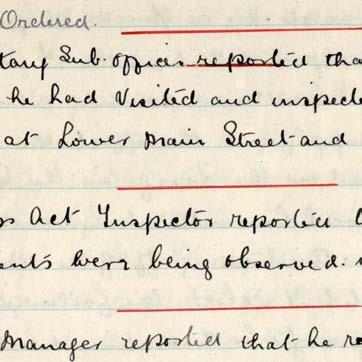 Ordered.
tary Sub. officer reported tha
he had Visited and inspecte
at Lower Main Street and
ss Act Inspector reported t
ents were being observed.
Manager reported that he r